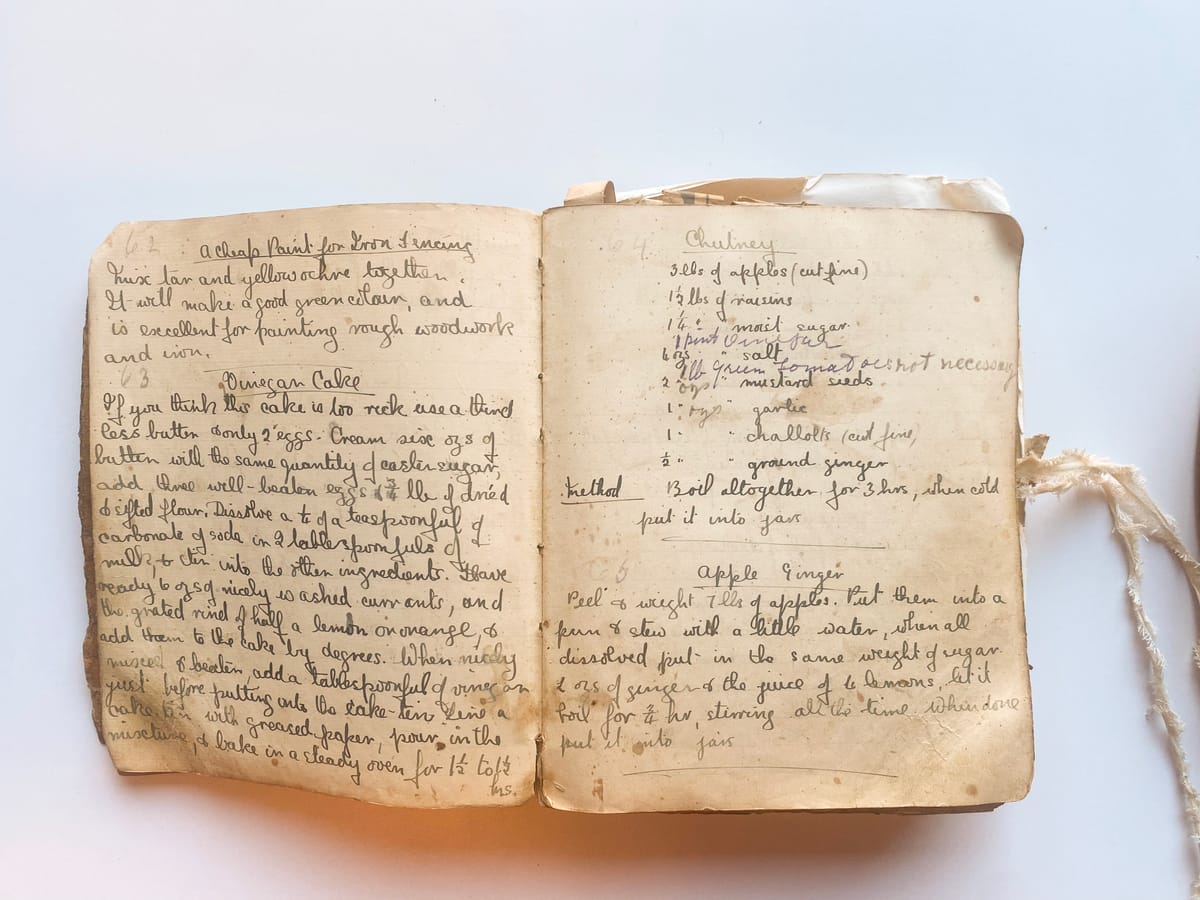 62
A cheap Paint for Iron Fencing
Mix tar and yellow ochre together.
It will make a good green colour, and
is excellent for painting rough woodwork
and iron.
63
Vinegar Cake
If you think this cake is too rich use a third
less butter & only 2 eggs. Cream six ozs of
butter with the same quantity of caster sugar,
add three well-beaten eggs & 3/4 lb of dried
& sifted flour. Dissolve a 1/2 of a teaspoonful of
carbonate of soda in 2 tablespoonfuls of
milk, & stir into the other ingredients. Have
ready 6 ozs of nicely washed currants, and
the grated rind of half a lemon or orange, &
add them to the cake by degrees. When nicely
mixed & beaten, add a tablespoonful of vinegar
just before putting into the cake-tin. Line a
cake tin with greased paper, pour in the
mixture, & bake in a steady oven for 1 1/2 to
hrs.
64
Chutney
3 lbs of apples (cut fine)
1 1/2 lbs of raisins
1 1/4 " moist sugar
1 pint Vinegar
4 ozs " salt
1 lb Green Tomatoes not necessary
2 ozs " mustard seeds
1 " ozs " garlic
1 " " challolts (cut fine)
1/2 " " ground ginger
Method Boil altogether for 3 hrs, when cold
put it into jars
65
Apple Ginger
Peel & weight 7 lbs of apples. Put them into a
pan & stew with a little water, when all
dissolved put in the same weight of sugar.
2 ozs of ginger & the juice of 6 lemons, let it
boil for 3/4 hr, stirring all the time. When done
put it into jars